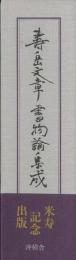 壽岳文章書物論集成
米寿
記念
出版
沖積舎